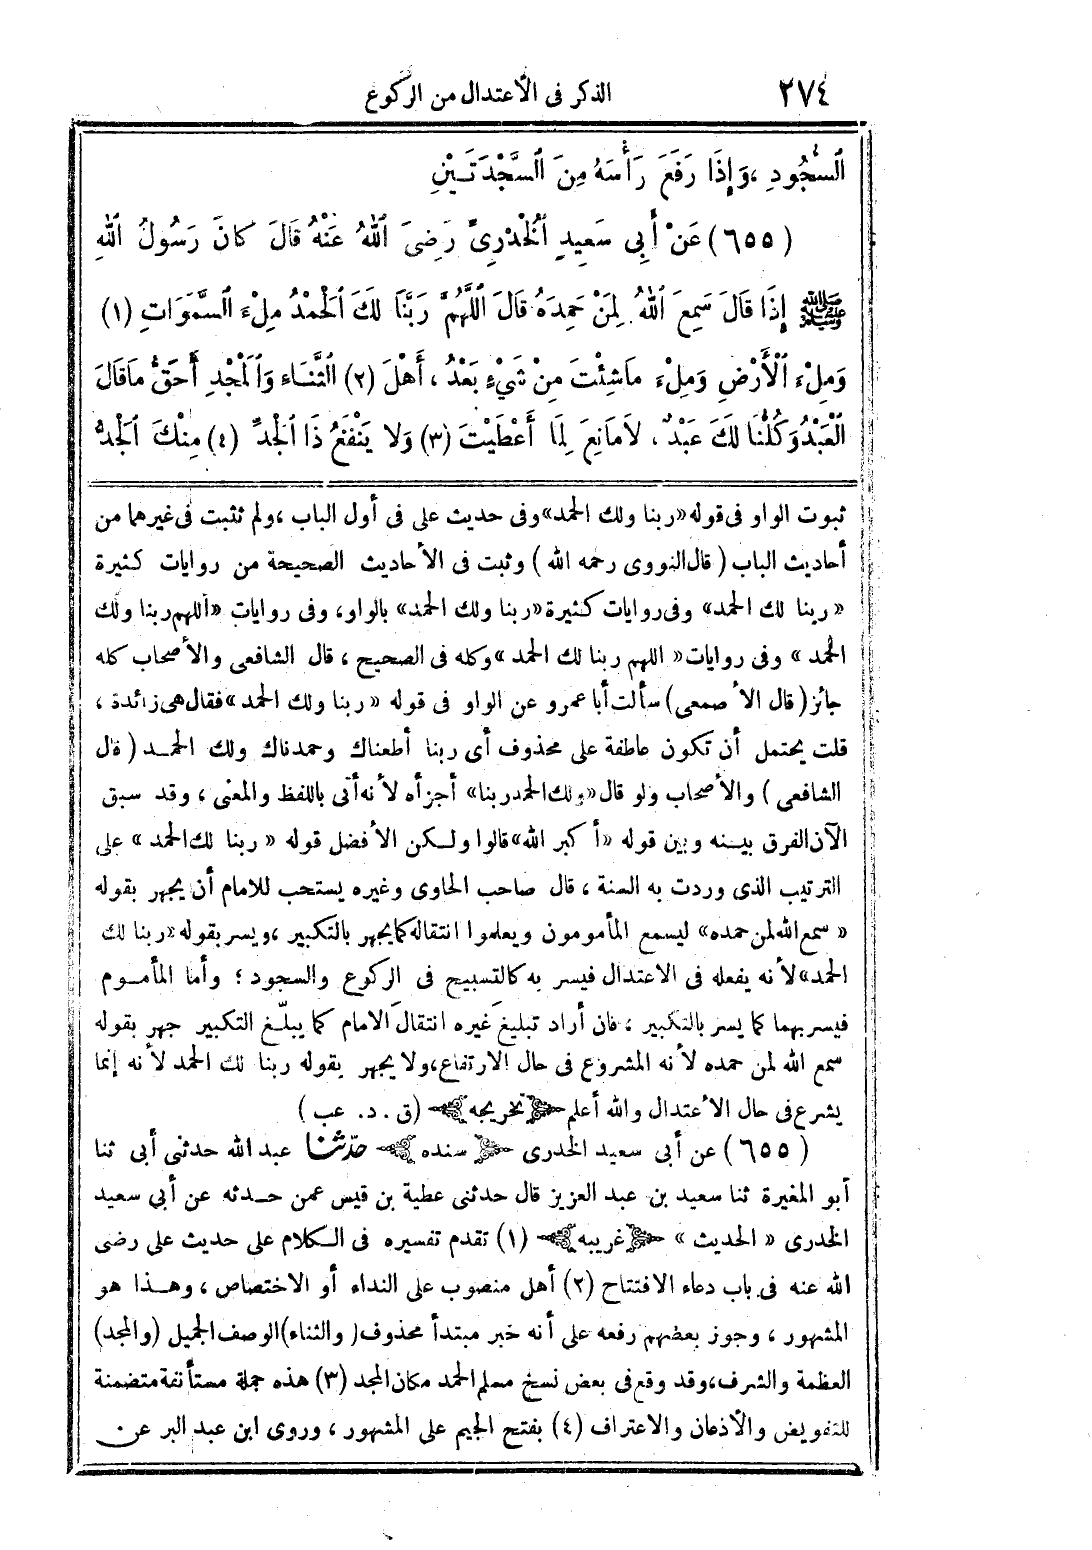 ٢٧٤ الذكر فى الاعتدال من الركوع
ٱلسُّجُودِ ، وَإِذَا رَفَعَ رَأْسَهُ مِنَ ٱلسَّجْدَتَيْنِ
(٦٥٥) عَنْ أَبِى سَعِيدٍ ٱلْخُدْرِىِّ رَضِىَ ٱللهُ عَنْهُ قَالَ كَانَ رَسُولُ ٱللهِ
ﷺ إِذَا قَالَ سَمِعَ ٱللهُ لِمَنْ حَمِدَهُ قَالَ ٱللَّهُمَّ رَبَّنَا لَكَ ٱلْحَمْدُ مِلْءَ ٱلسَّمَوَاتِ (١)
وَمِلْءَ ٱلْأَرْضِ وَمِلْءَ مَاشِئْتَ مِنْ شَيْءٍ بَعْدُ ، أَهْلَ (٢) ٱلثَّنَاءِ وَٱلْمَجْدِ أَحَقُّ مَاقَالَ
ٱلْعَبْدُ وَكُلُّنَا لَكَ عَبْدٌ ، لَامَانِعَ لِمَا أَعْطَيْتَ (٣) وَلَا يَنْفَعُ ذَا ٱلْجَدِّ (٤) مِنْكَ ٱلْجَدُّ
ثبوت الواو فى قوله «ربنا ولك الحمد» وفى حديث على فى أول الباب ، ولم تثبت فى غيرها من
أحاديث الباب ( قال النووى رحمه الله ) وثبت فى الأحاديث الصحيحة من روايات كثيرة
« ربنا لك الحمد» وفى روايات كثيرة «ربنا ولك الحمد» بالواو، وفى روايات «اللهم ربنا ولك
الحمد » وفى روايات « اللهم ربنا لك الحمد » وكله فى الصحيح ، قال الشافعى والأصحاب كله
جائز ( قال الأصمعى) سألت أبا عمرو عن الواو فى قوله « ربنا ولك الحمد » فقال هى زائدة ،
قلت يحتمل أن تكون عاطفة على محذوف أى ربنا أطعناك وحمدناك ولك الحمد ( قال
الشافعى ) والأصحاب ولو قال «ولك الحمد ربنا» أجزأه لأنه أتى باللفظ والمعنى ، وقد سبق
الآن الفرق بينه وبين قوله «أكبر الله» قالوا ولكن الأفضل قوله « ربنا لك الحمد » على
الترتيب الذى وردت به السنة ، قال صاحب الحاوى وغيره يستحب للامام أن يجهر بقوله
« سمع الله لمن حمده» ليسمع المأمومون ويعلموا انتقاله كما يجهر بالتكبير ، ويسر بقوله «ربنا لك
الحمد» لأنه يفعله فى الاعتدال فيسر به كالتسبيح فى الركوع والسجود ؛ وأما المأموم
فيسر بهما كما يسر بالتكبير ، فان أراد تبليغ غيره انتقال الامام كما يبلّغ التكبير جهر بقوله
سمع الله لمن حمده لأنه المشروع فى حال الارتفاع، ولا يجهر بقوله ربنا لك الحمد لأنه إنما
يشرع فى حال الاعتدال والله أعلم ﴿تخريجه﴾ (ق . د. عب )
(٦٥٥) عن أبى سعيد الخدرى ﴿سنده﴾ حدّثنا عبد الله حدثنى أبى ثنا
أبو المغيرة ثنا سعيد بن عبد العزيز قال حدثنى عطية بن قيس عمن حدثه عن أبي سعيد
الخدرى « الحديث » ﴿غريبه﴾ (١) تقدم تفسيره فى الكلام على حديث على رضى
الله عنه فى باب دعاء الافتتاح (٢) أهل منصوب على النداء أو الاختصاص ، وهذا هو
المشهور ، وجوز بعضهم رفعه على أنه خبر مبتدأ محذوف (والثناء) الوصف الجميل (والمجد)
العظمة والشرف، وقد وقع فى بعض نسخ مسلم الحمد مكان المجد (٣) هذه جملة مستأنفة متضمنة
للتفويض والأذعان والاعتراف (٤) بفتح الجيم على المشهور ، وروى ابن عبد البر عن